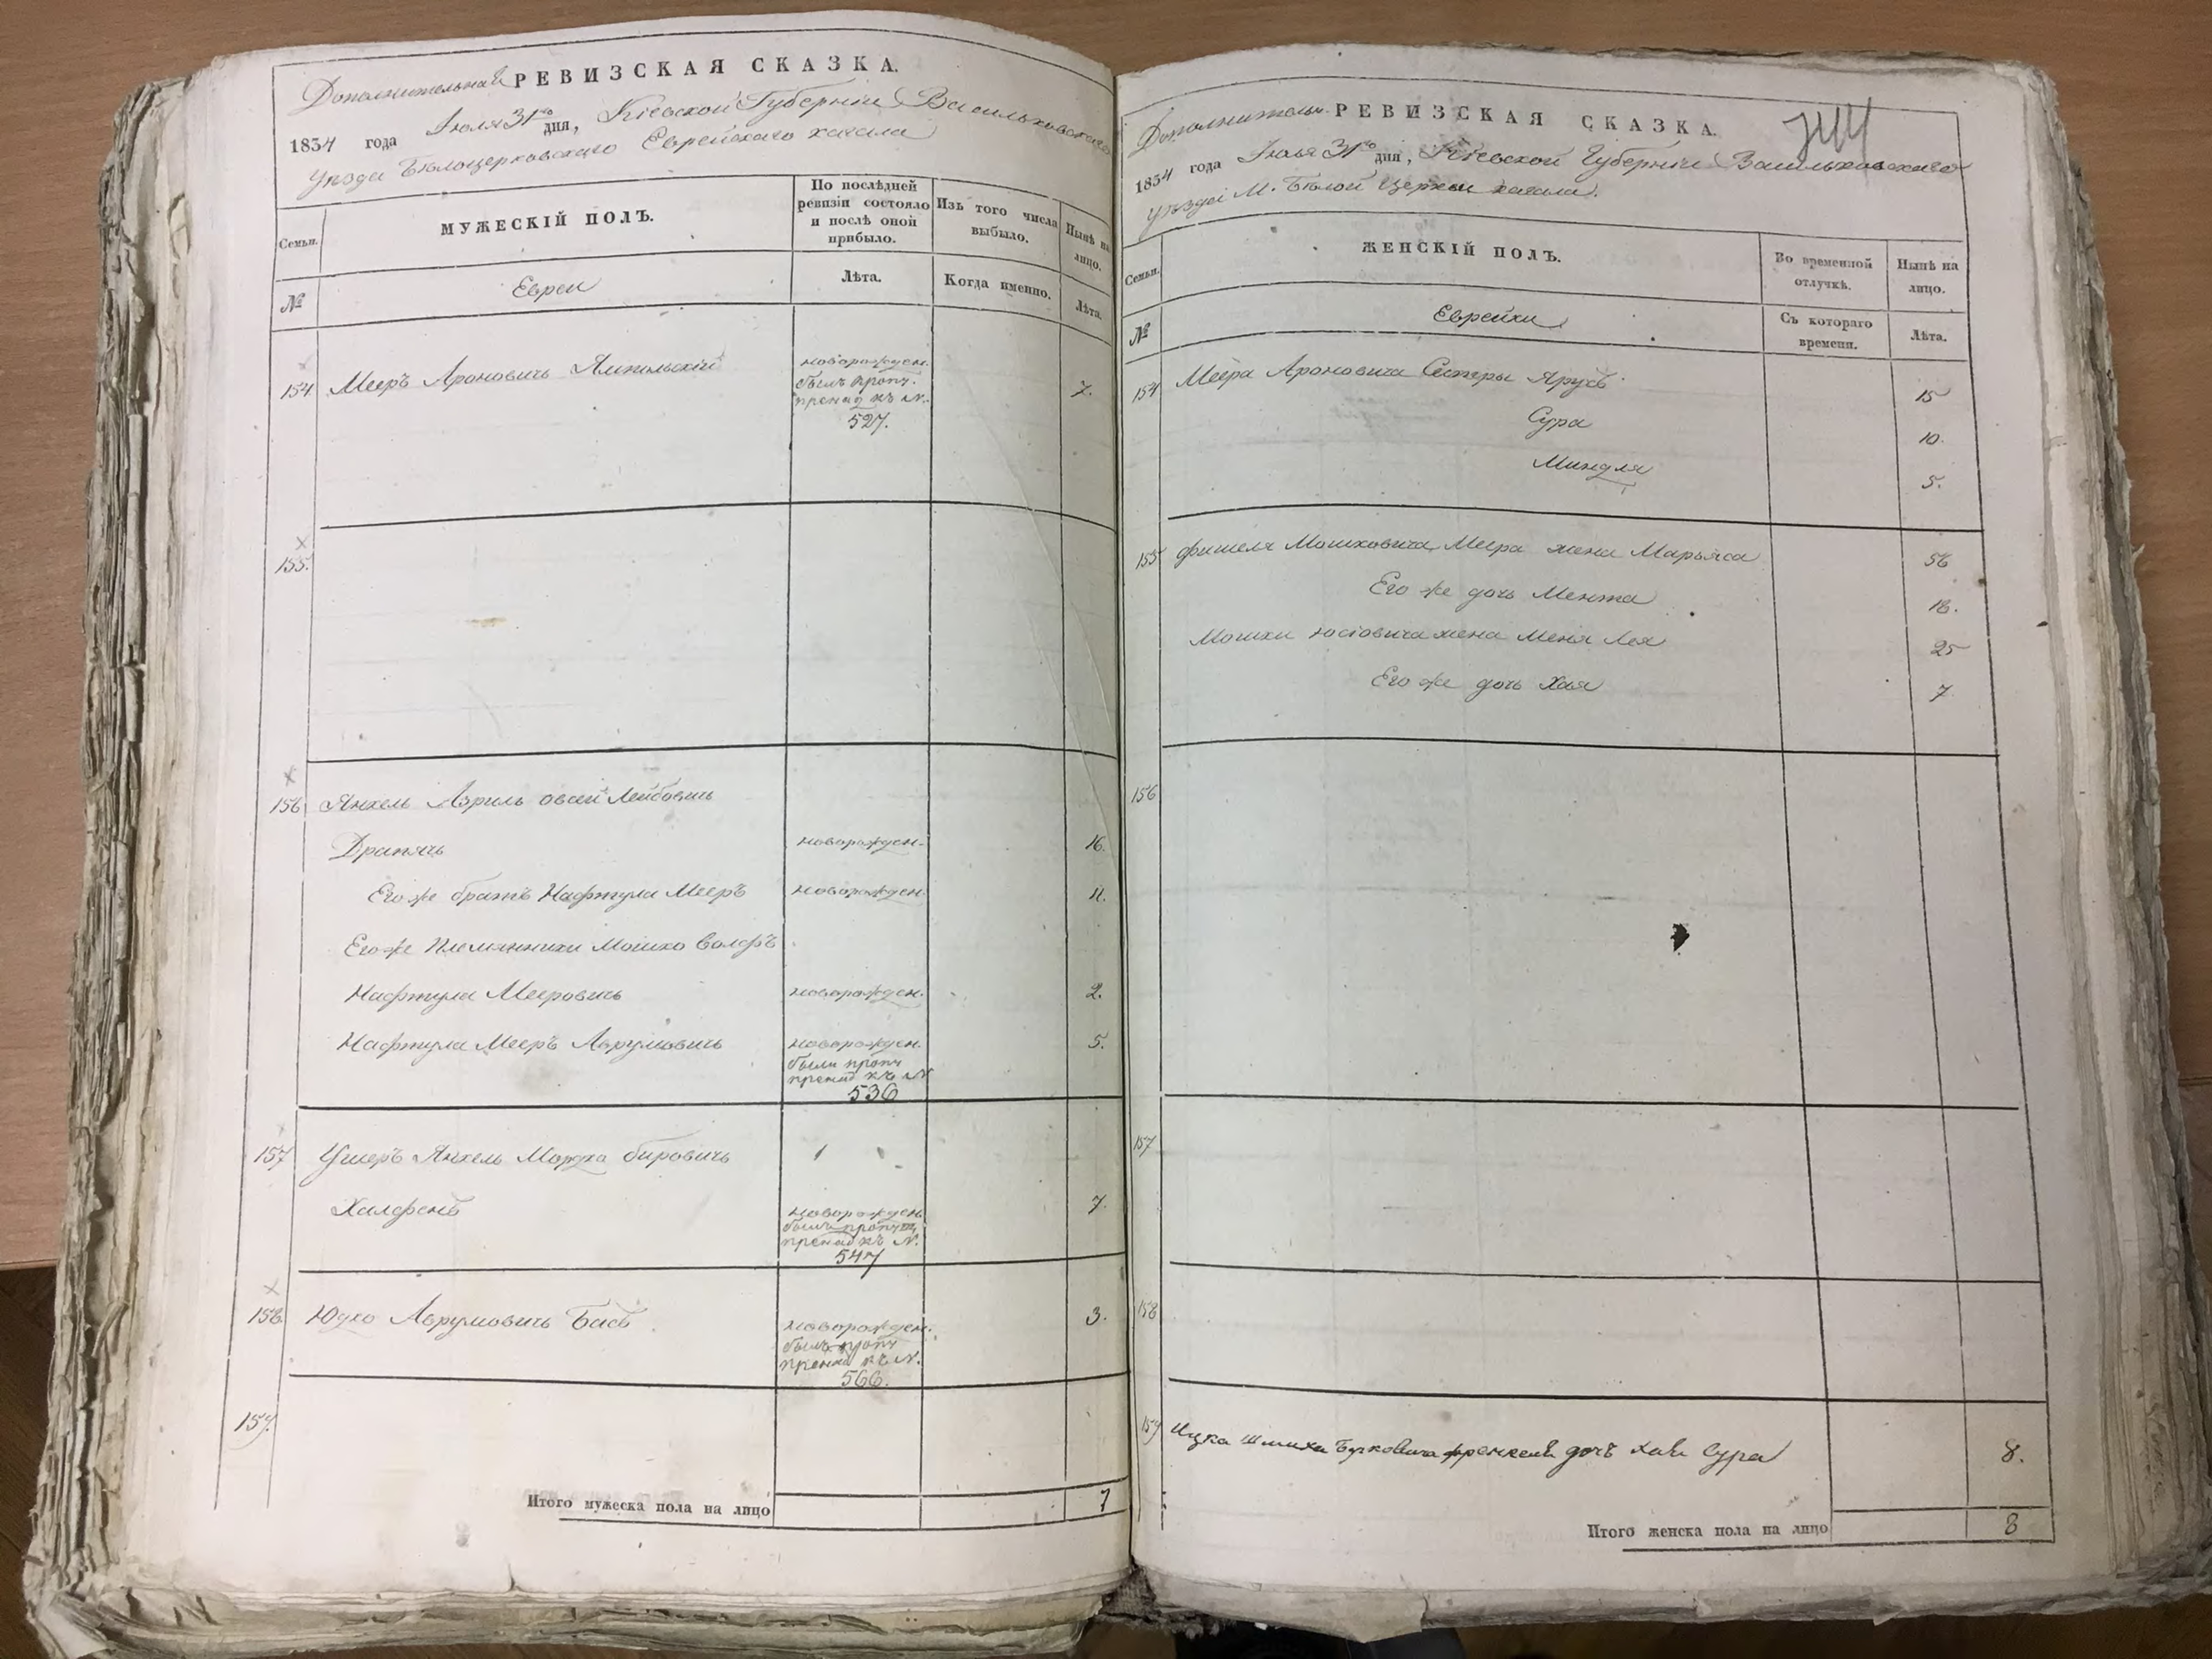 Дополнительная РЕВИЗСКАЯ СКАЗКА.
1834 года Іюля 31го дня, Кіевской Губерніи Васильковскаго
уезда Белоцерковскаго Еврейскаго кагала
Семьи.
МУЖЕСКІЙ ПОЛЪ.
По послѣдней ревизіи состояло и послѣ оной прибыло.
Изъ того числа выбыло.
Нынѣ на лицо.
№
Евреи
Лѣта.
Когда именно.
Лѣта.
154 Мееръ Ароновичь Ямпольскій новорожден. 7.
былъ проп.
къ №.
527.
155.
156 Янкель Азриль Овсей Лейбовичь
Драпачь новорожден. 16.
Его же братъ Нафтула Мееръ новорожден. 11.
Его же Племянники Мошко Волфъ
Нафтула Мееровичь новорожден. 2.
Нафтула Мееръ Аврумовичь новорожден. 5.
были проп
къ №
536
157 Ушеръ Янкель Мордха Бировичь
Халфенъ новорожден. 7.
былъ проп
къ №.
547
158. Юдко Аврумовичь Басъ новорожден. 3.
былъ проп
къ №.
566.
159.
Итого мужеска пола на лицо 7
744
Дополнительн. РЕВИЗСКАЯ СКАЗКА.
1834 года Іюля 31го дня, Кіевской Губерніи Васильковскаго
уезда М. Белой Церкви кагала.
Семьи.
ЖЕНСКІЙ ПОЛЪ.
Во временной отлучкѣ.
Нынѣ на лицо.
№
Еврейки
Съ котораго времени.
Лѣта.
154 Меера Ароновича Сестры Ярусь 15
Сура 10.
Миндля 5.
155 Фишеля Мошковича Меера жена Марьяса 56
Его же дочь Мента 18.
Мошки Юсіовича жена Меня Лея 25
Его же дочь Хая 7
156
157
158
159 Ицка Шмиха Берковича Френкеля дочъ Хава Сура 8.
Итого женска пола на лицо 8